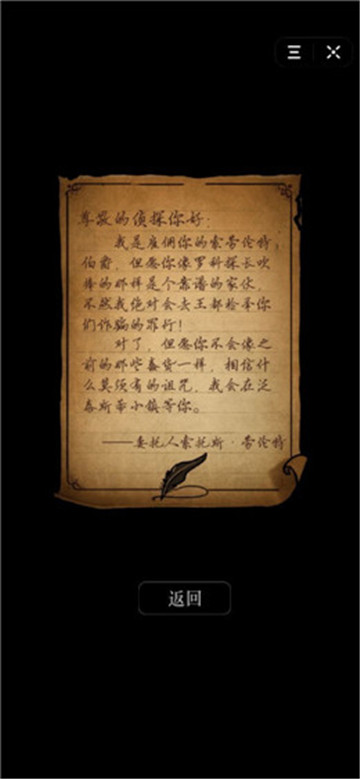 尊敬的侦探你好：
我是雇佣你的索劳伦特，
伯爵，但愿你像罗科探长吹
捧的那样是个靠谱的家伙，
不然我绝对会去王都检举你
们诈骗的罪行！
对了，但愿你不会像之
前的那些蠢货一样，相信什
么莫须有的诅咒，我会在泛
泰斯蒂小镇等你。
——委托人索托斯·劳伦特
返回